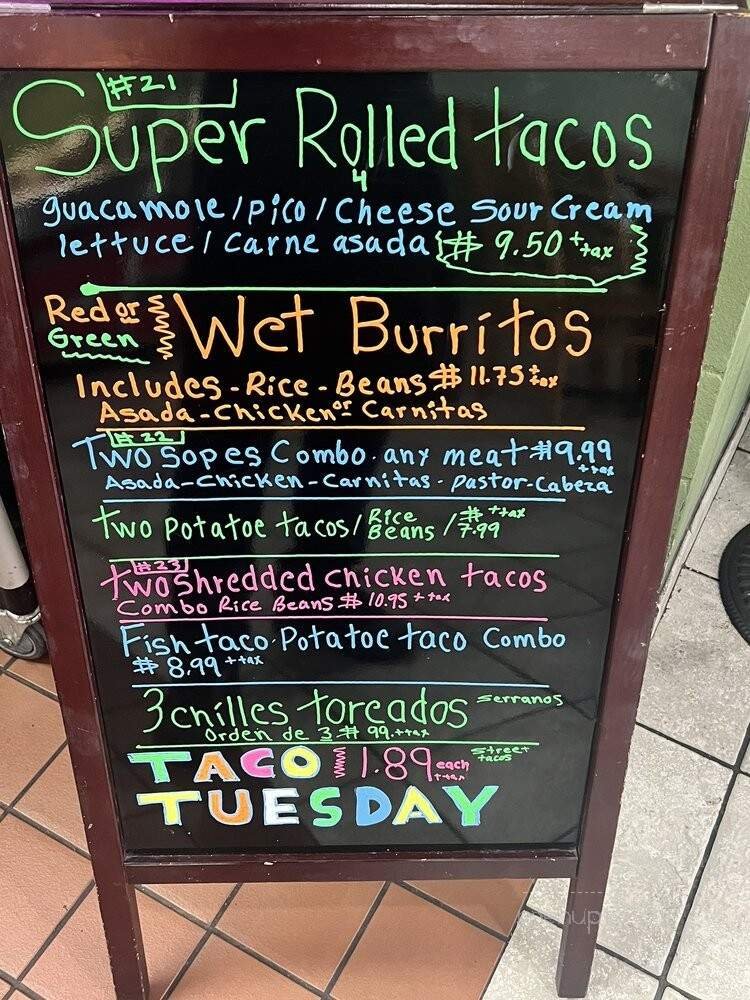 #21
Super Rolled tacos
4
guacamole / Pico / Cheese Sour Cream
lettuce / Carne asada $ 9.50 + tax
Red or Green
Wet Burritos
Includes - Rice - Beans $ 11.75 + tax
Asada - Chicken or Carnitas
#22
Two Sopes Combo . any meat $9.99 + tax
Asada - Chicken - Carnitas - Pastor - Cabeza
two Potatoe tacos / Rice Beans / $ 7.99 + tax
#23
two Shredded Chicken tacos
Combo Rice Beans $ 10.95 + tax
Fish taco . Potatoe taco Combo
$ 8.99 + tax
3 chilles toreados Serranos
Orden de 3 $ 99. + tax
TACO 1.89 each + tax street tacos
TUESDAY